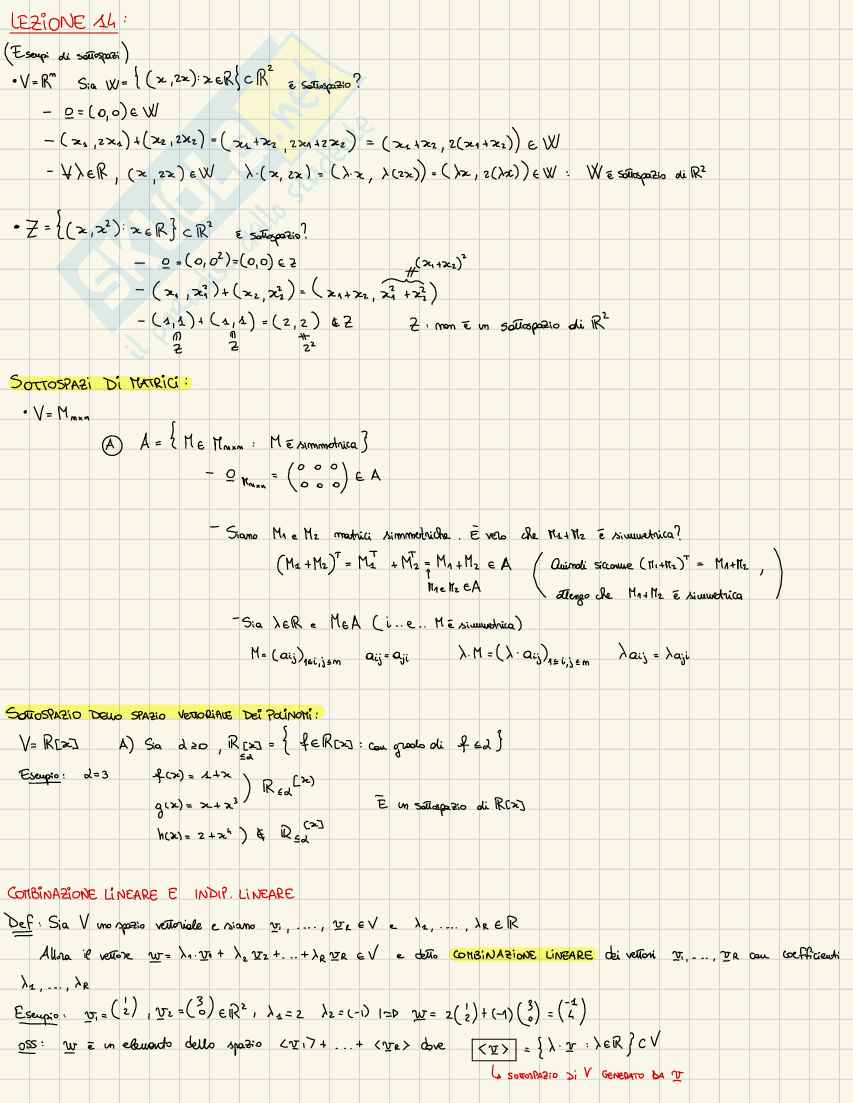 LEZIONE 14:
(Esempi di sottospazi)
• V = ℝⁿ Sia W = {(x, 2x) : x ∈ ℝ} ⊂ ℝ² è sottospazio?
- 0 = (0,0) ∈ W
- (x₁, 2x₁) + (x₂, 2x₂) = (x₁+x₂, 2x₁+2x₂) = (x₁+x₂, 2(x₁+x₂)) ∈ W
- ∀λ∈ℝ, (x, 2x) ∈ W λ·(x, 2x) = (λ·x, λ(2x)) = (λx, 2(λx)) ∈ W : W è sottospazio di ℝ²
• Z = {(x, x²) : x ∈ ℝ} ⊂ ℝ² è sottospazio?
- 0 = (0, 0²) = (0,0) ∈ Z
≠ (x₁+x₂)²
- (x₁, x₁²) + (x₂, x₂²) = (x₁+x₂, x₁²+x₂²)
- (1,1) + (1,1) = (2,2) ∉ Z Z. non è un sottospazio di ℝ²
∩ ∩ ≠
Z Z 2²
SOTTOSPAZI DI MATRICI:
• V = Mₘₓₙ
Ⓐ A = {M ∈ Mₘₓₙ : M è simmetrica}
- 0 Mₘₓₙ = (0 0 0
0 0 0) ∈ A
- Siano M₁ e M₂ matrici simmetriche. È vero che M₁+M₂ è simmetrica?
(M₁+M₂)ᵀ = M₁ᵀ + M₂ᵀ = M₁+M₂ ∈ A (Quindi siccome (M₁+M₂)ᵀ = M₁+M₂,
↑ M₁ e M₂ ∈ A
ottengo che M₁+M₂ è simmetrica)
- Sia λ∈ℝ e M∈A (i..e.. M è simmetrica)
M = (aij)₁≤i,j≤n aij = aji λ·M = (λ·aij)₁≤i,j≤n λaij = λaji
SOTTOSPAZIO DELLO SPAZIO VETTORIALE DEI POLINOMI:
V = ℝ[x] A) Sia d≥0, ℝ[x]≤d = {f∈ℝ[x] : con grado di f ≤ d}
Esempio: d=3 f(x) = 1+x
g(x) = x+x³ ) ℝ≤d[x] È un sottospazio di ℝ[x]
h(x) = 2+x⁴ ) ∉ ℝ≤d[x]
COMBINAZIONE LINEARE E INDIP. LINEARE
Def: Sia V uno spazio vettoriale e siano v₁, ...., vR ∈ V e λ₁, ...., λR ∈ ℝ
Allora il vettore w = λ₁·v₁ + λ₂v₂ + ... + λR vR ∈ V e detto COMBINAZIONE LINEARE dei vettori v₁, ..., vR con coefficienti
λ₁, ..., λR
Esempio: v₁ = (1 2), v₂ = (3 0) ∈ ℝ², λ₁ = 2 λ₂ = (-1) |=D w = 2(1 2) + (-1)(3 0) = (-1 4)
oss: w è un elemento dello spazio <v₁> + ... + <vR> dove <v> = {λ·v : λ∈ℝ} ⊂ V
↳ SOTTOSPAZIO DI V GENERATO DA v
SKUOLA.net
il paradiso dello studente